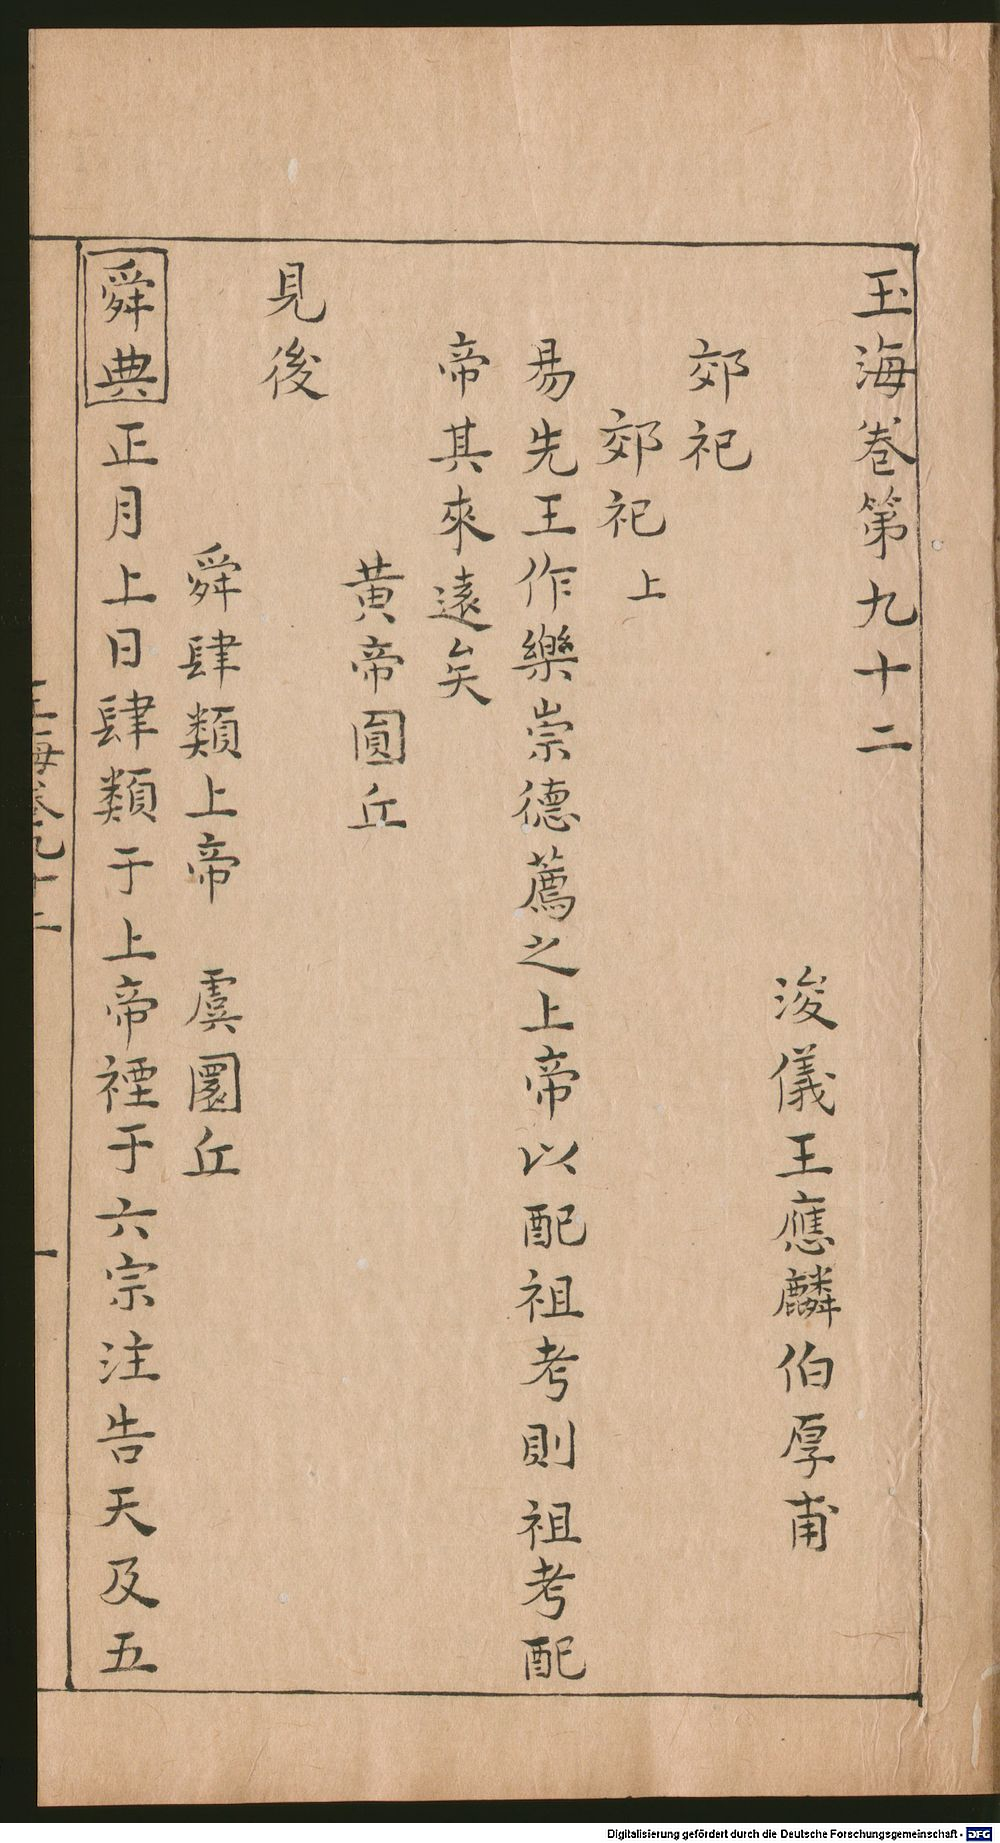 玉海卷第九十二
浚儀王應麟伯厚甫
郊祀
郊祀上
易先王作樂崇德薦之上帝以配祖考則祖考配
帝其來遠矣
黃帝圓丘
見後
舜肆類上帝　虞圜丘
舜典正月上日肆類于上帝禋于六宗注告天及五
玉海卷九十二　一
Digitalisierung gefördert durch die Deutsche Forschungsgemeinschaft - DFG